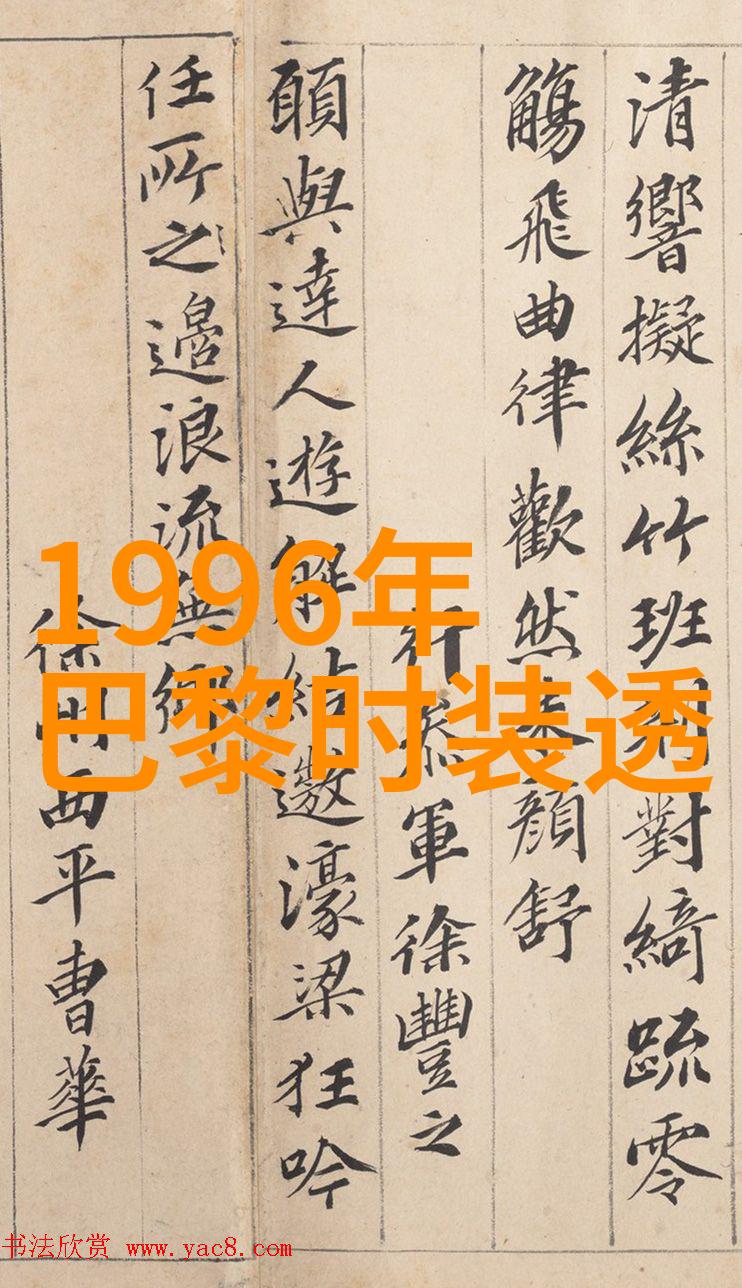 清響擬絲竹班荆對綺疏零
觴飛曲律歡然朱顏舒
行叅軍徐豐之
願與達人遊解結遨濠梁狂吟
任所之邉浪流無鄉
徐州西平曹華
1996年
巴黎时装透
书法欣赏 www.yac8.com